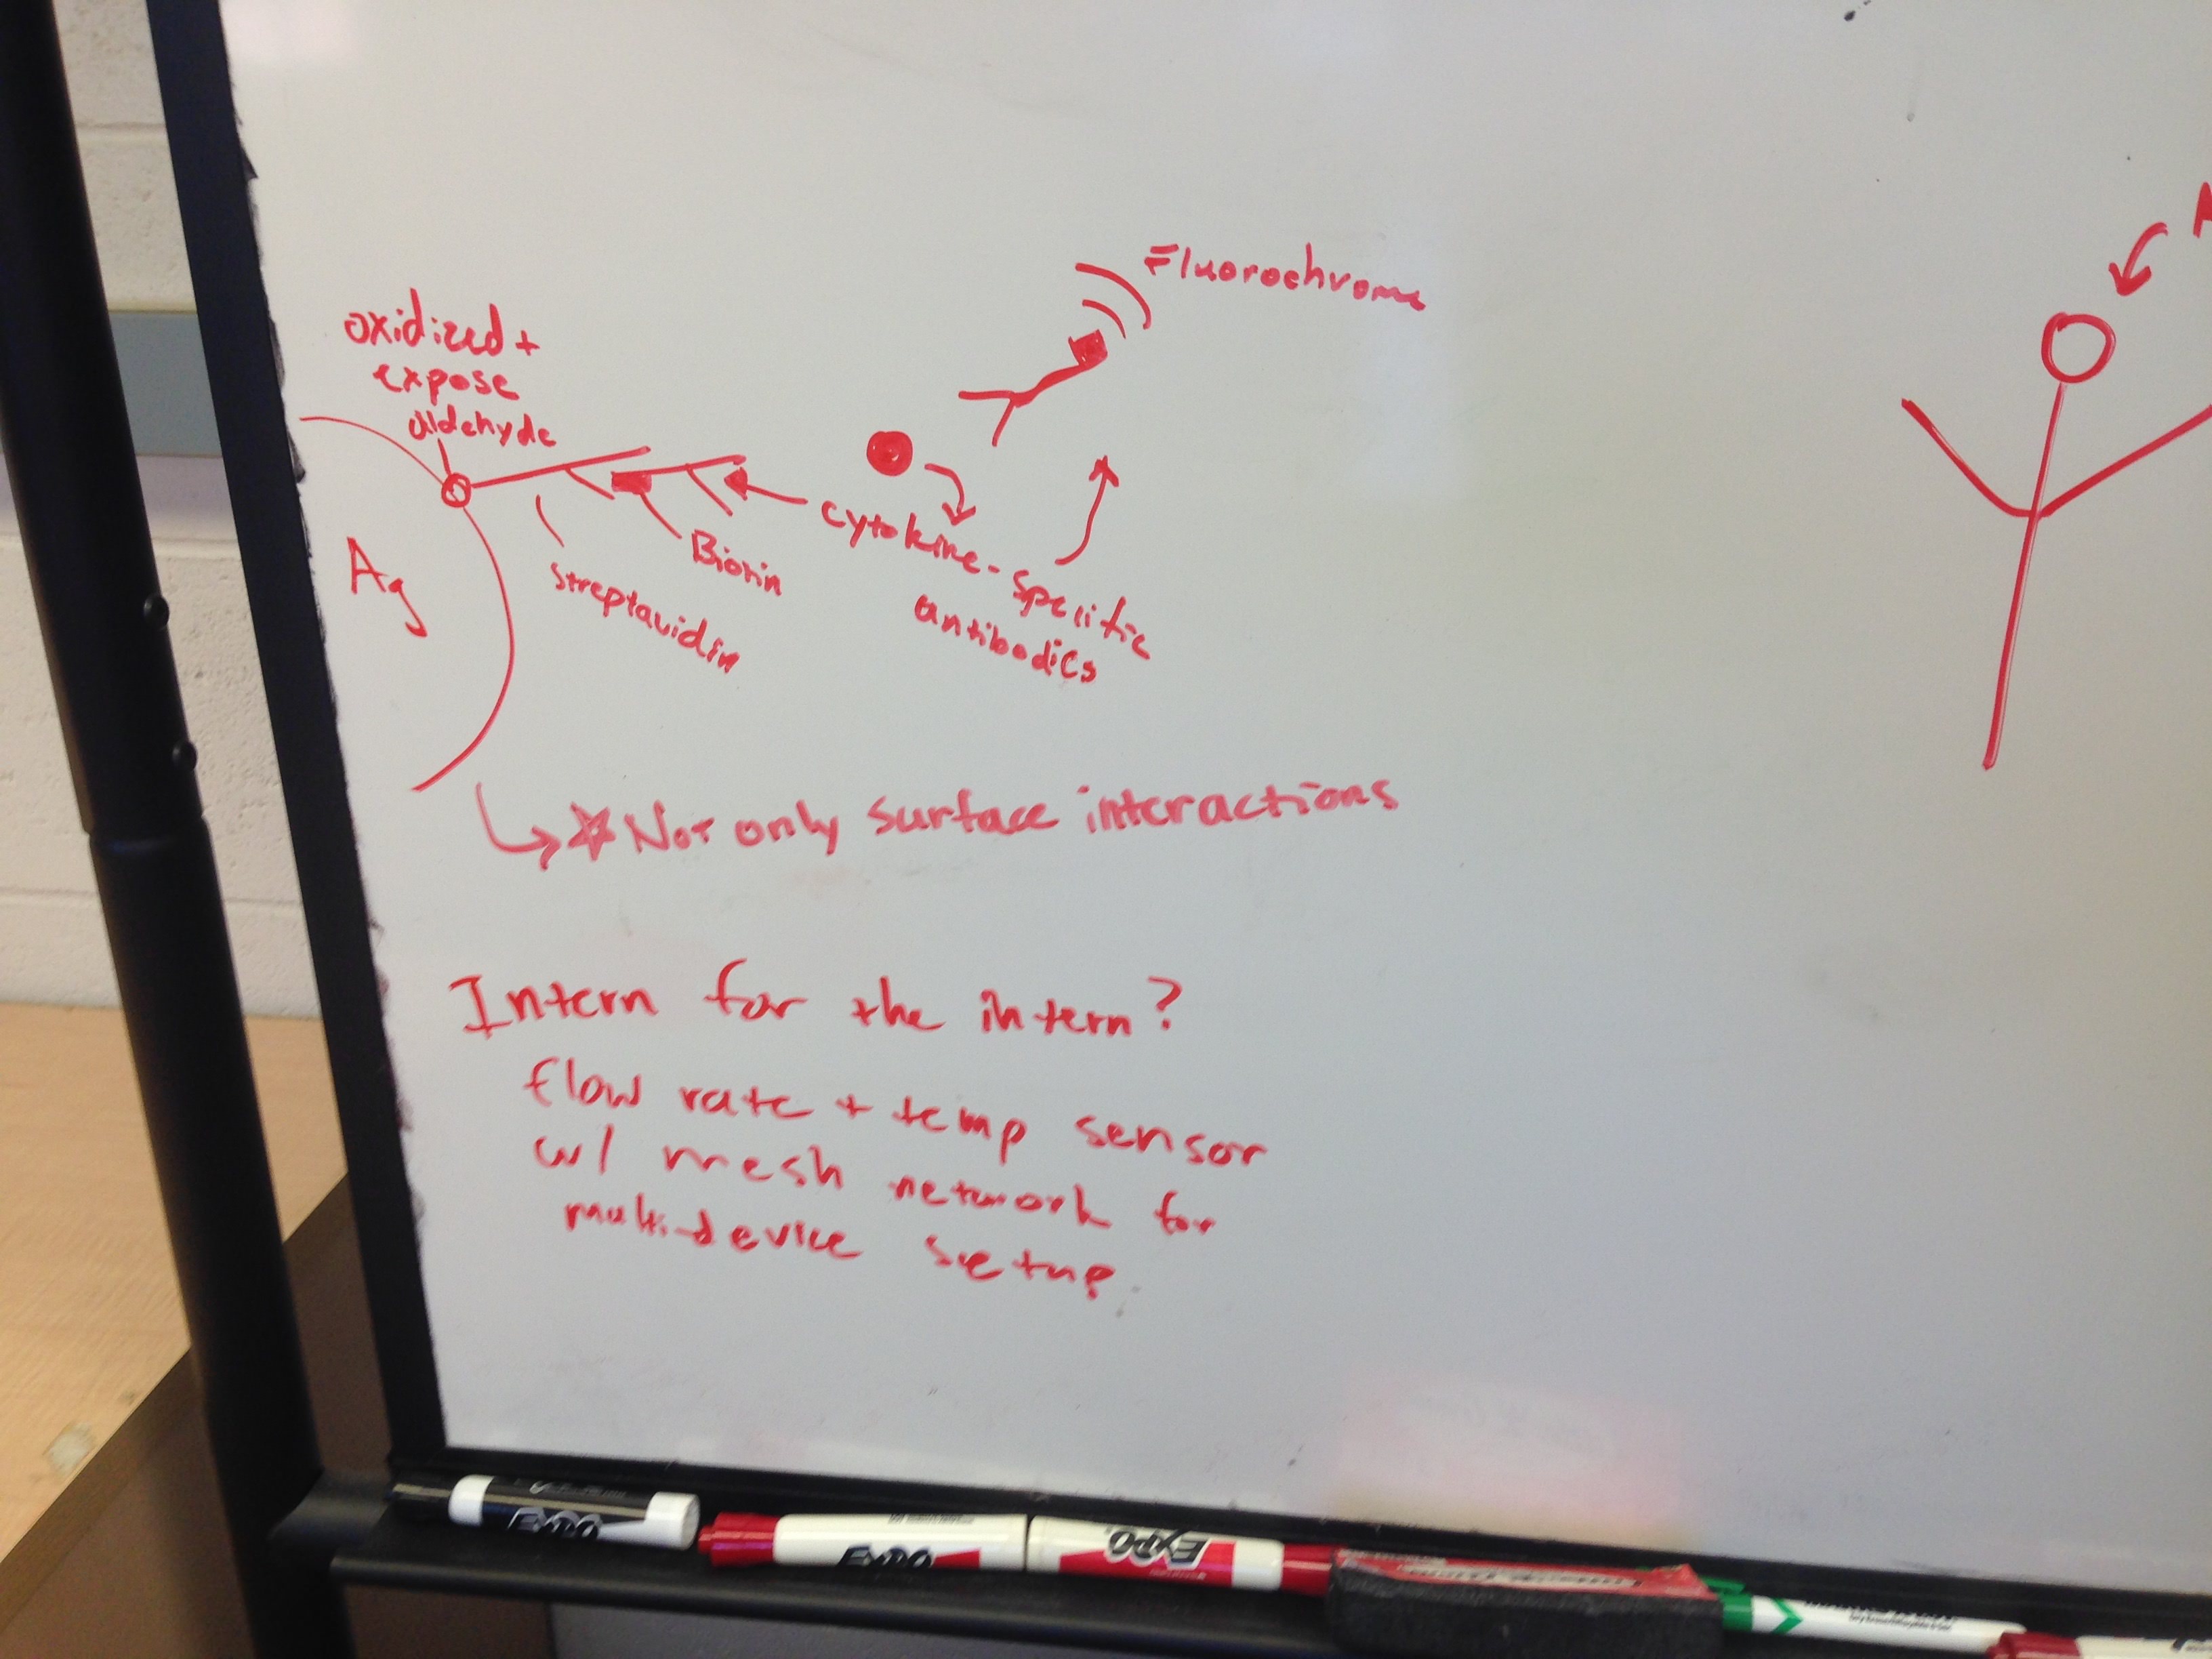 Fluorochrome
oxidized +
expose
aldehyde
Ag
Streptavidin
Biotin
cytokine-specific
antibodies
Not only surface interactions
Intern for the intern?
flow rate + temp sensor
w/ mesh network for
multi-device setup
EXPO
EXPO
EXPO